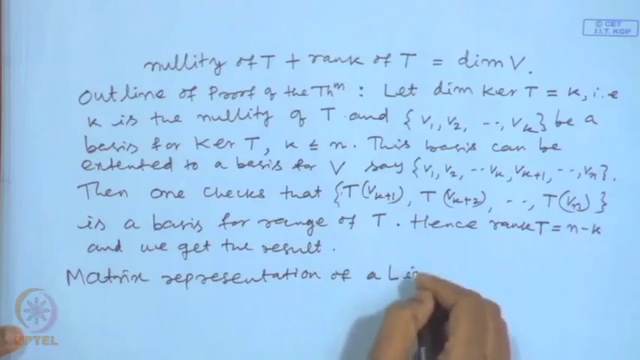 © CET
I.I.T. KGP
nullity of T + rank of T = dim V.
Outline of Proof of the Thm : Let dim Ker T = k, i.e
k is the nullity of T and {v1, v2, ..., vk} be a
basis for Ker T, k ≤ n. This basis can be
extented to a basis for V say {v1, v2, .. vk, vk+1, .., vn}.
Then one checks that {T(vk+1), T(vk+2), .., T(vn)}
is a basis for range of T. Hence rank T = n-k
and we get the result.
Matrix representation of a Li
NPTEL